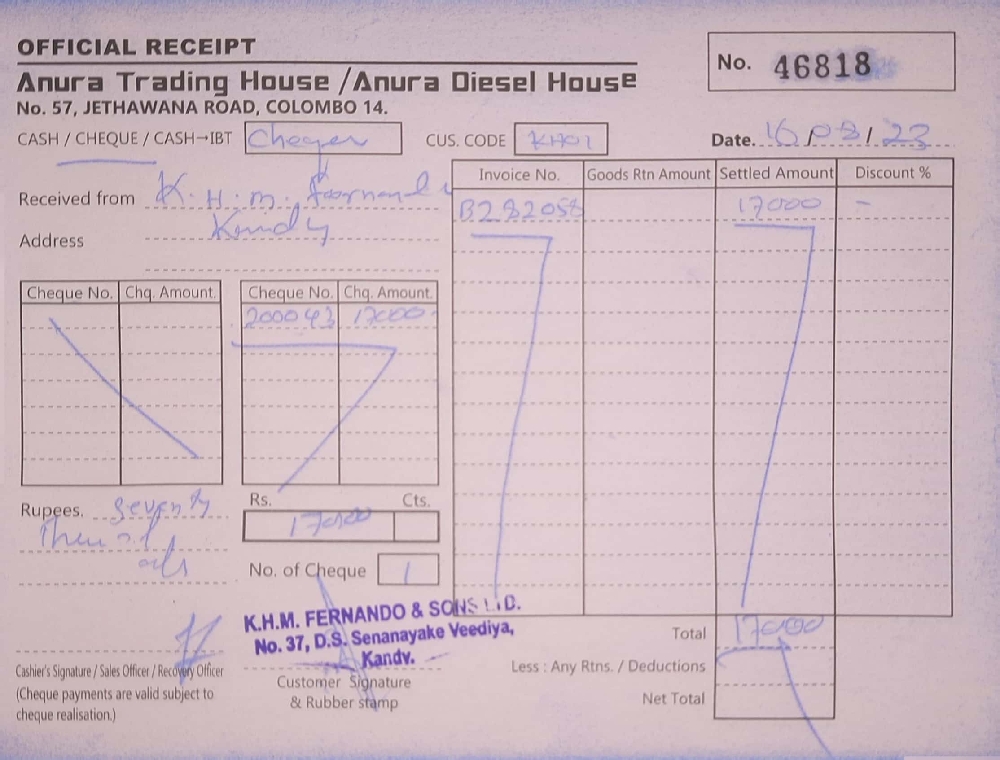 OFFICIAL RECEIPT
No. 46818
Anura Trading House / Anura Diesel House
No. 57, JETHAWANA ROAD, COLOMBO 14.
CASH / CHEQUE / CASH→IBT
CUS. CODE KH01
Date. 16/08/23
Received from K. H. M.
Address Kandy
Invoice No. Goods Rtn Amount Settled Amount Discount %
B282058 17000 -
Cheque No. Chq. Amount. Cheque No. Chq. Amount.
200043 17000
Rs. Cts.
Rupees.
17000
No. of Cheque 1
K.H.M. FERNANDO & SONS LTD.
No. 37, D.S. Senanayake Veediya,
Kandy.
Total 17000
Less : Any Rtns. / Deductions
Net Total
Cashier's Signature / Sales Officer / Recovery Officer
(Cheque payments are valid subject to
cheque realisation.)
Customer Signature
& Rubber stamp